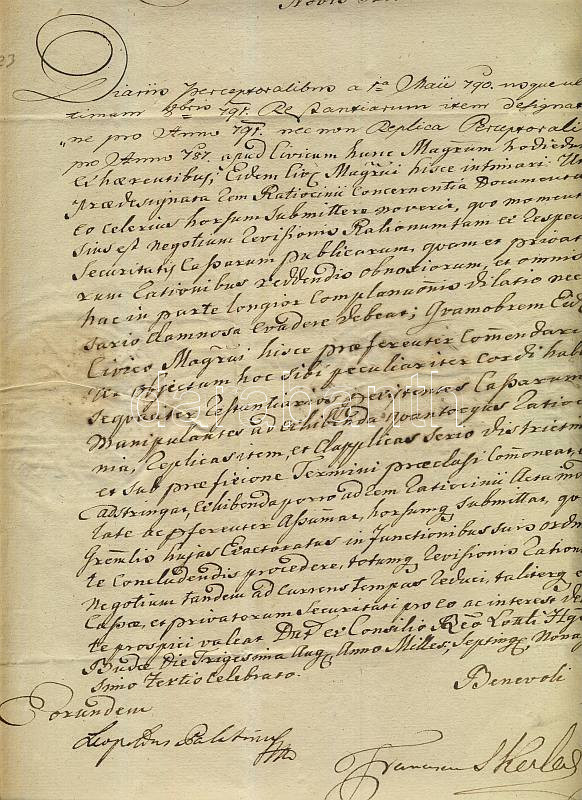 Diariis perceptoralibus a 1ma Maii 790. usque ul
timam 8bris 791. Restantiarum item designat
ne pro Anno 791. nec non Replica Perceptorali
pro Anno 787. apud Civicum hunc Magrum hodiedum
Eidem Civ. Magrui hisce intimari: Ut
Praedesignata Rationii Concernentia Documenta
eo celerius horsum submittere noverit, quo momen
sius est Negotium Revisionis Rationum tam ex respec
securitatis Cassarum publicarum, quam et privat
rum rationibus reddendis obnoxiorum, et omnis
hac in parte longior dilatio nec
sario damnosa evadere debeat; Quamobrem Eid
Civico Magrui hisce praeferenter Comendare
Ut objectum hoc sibi peculiariter cordi hab
sequenter Restantiarios existentes Cassarum
Manipulantes ad exhibenda quantocyus Ratioc
nia, Replicas item, et Duplicas serio districtim
et sub praefixione Termini praeclusi Comoneat,
adstringat, Exhibenda porro adem Ratiocinii Acta
late ac praeferenter Assumat, horsumq submittat, quo
Gremio hujus Exactoratus in functionibus suis ordin
te Concludendis procedere, totumq Revisionis Ration
Negotium tandem ad currens tempus reduci, taliterq
Cassae, et privatorum securitati pro eo ac interest de
te prospici valeat Dat ex Consilio Reo Lottli Hun
Budae Die Trigesima Aug. Anno Milles, Septingen, Nona
simo tertio Celebrato.
Benevoli
Eorundem
Leopoldus Palatinus
Franciscus Skerlecz
darabanth